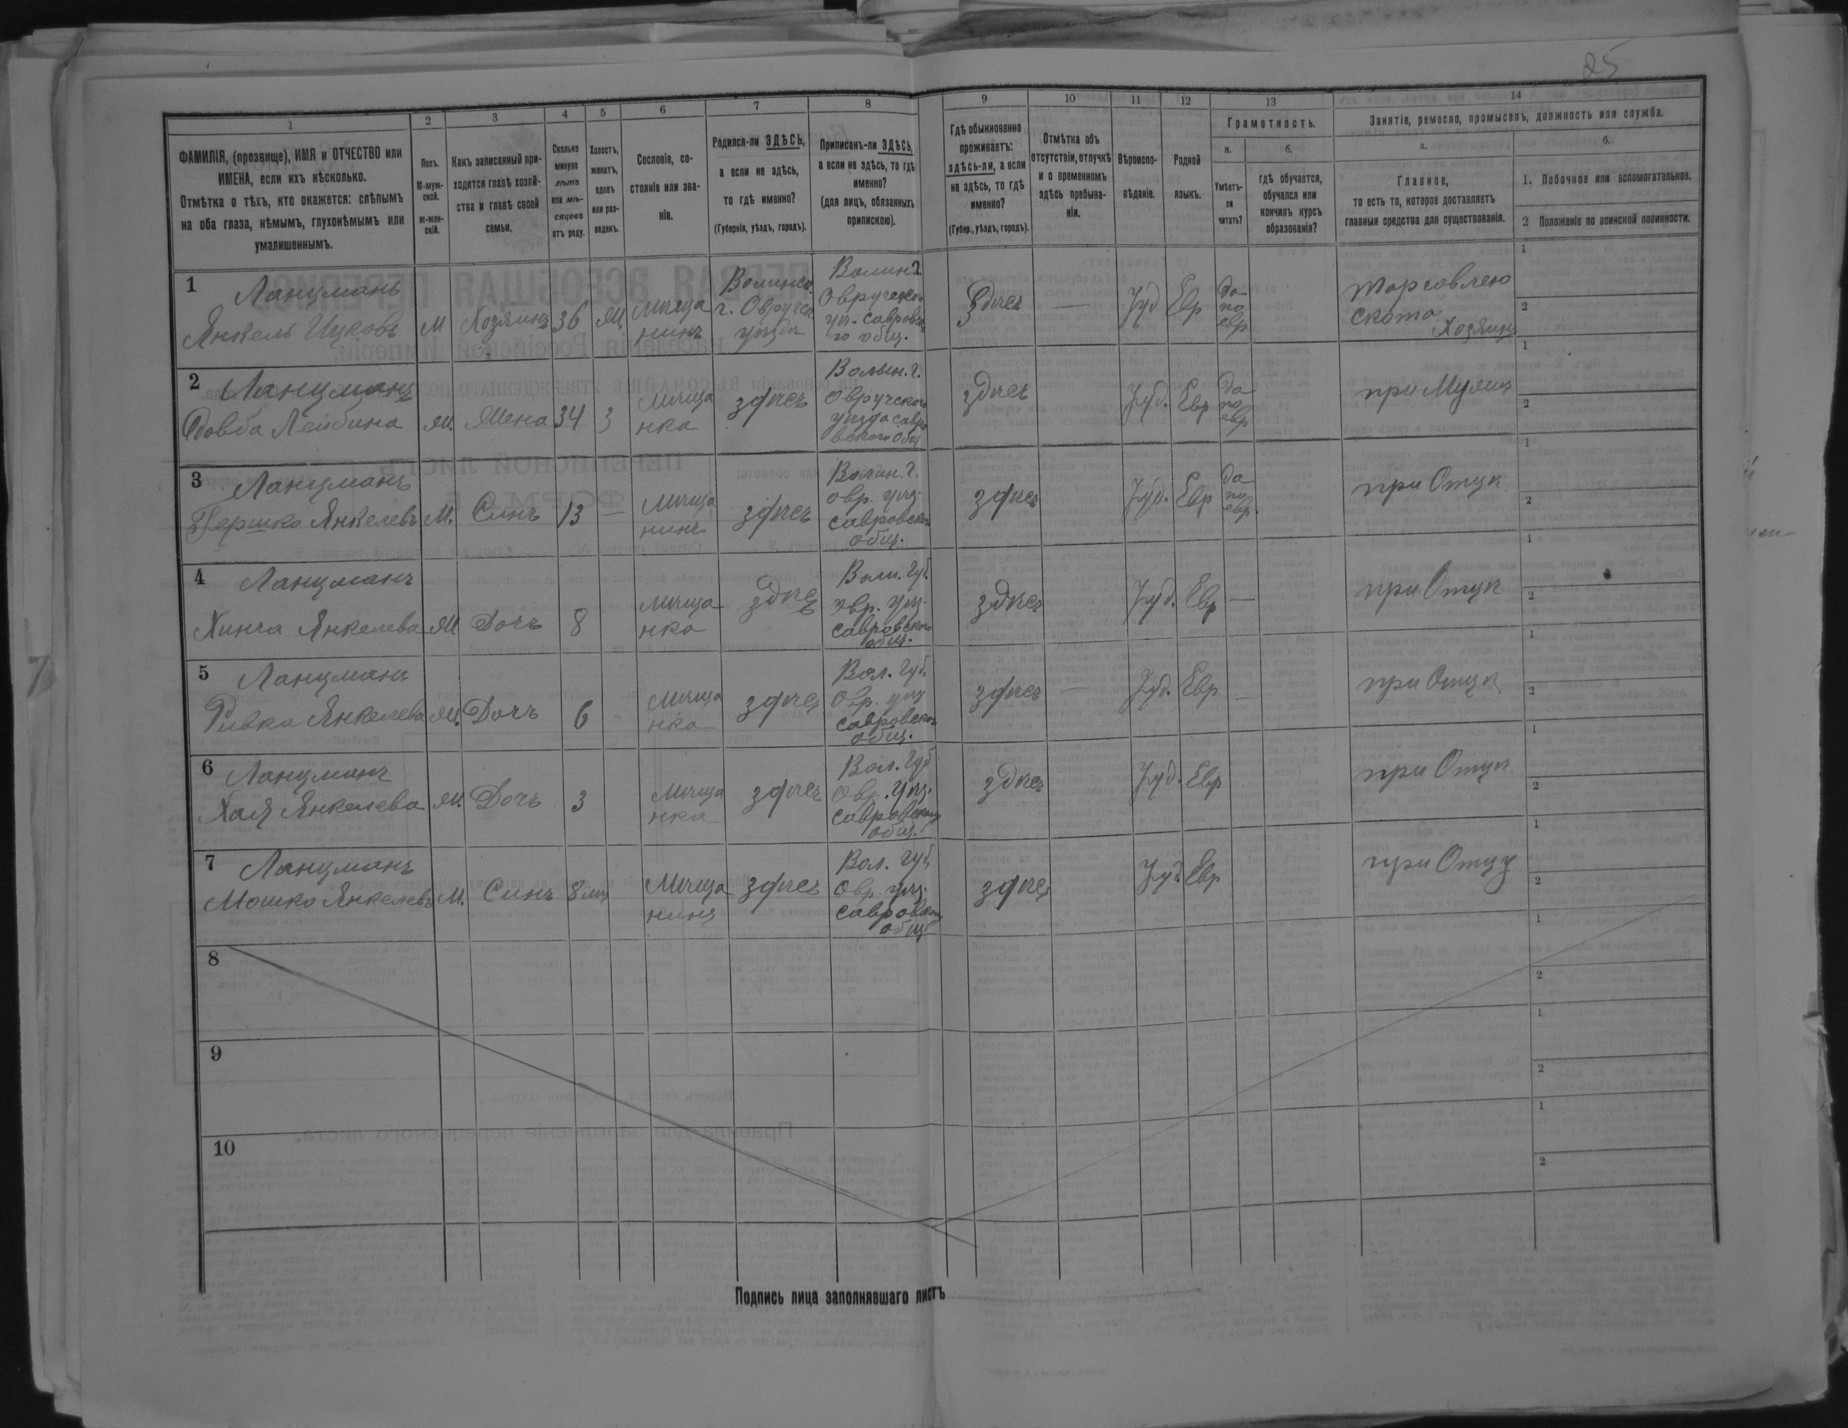 25
1 2 3 4 5 6 7 8 9 10 11 12 13 14
ФАМИЛІЯ, (прозвище), ИМЯ и ОТЧЕСТВО или
ИМЕНА, если ихъ нѣсколько.
Отмѣтка о тѣхъ, кто окажется: слѣпымъ
на оба глаза, нѣмымъ, глухонѣмымъ или
умалишеннымъ.
Полъ.
М-муж-
ской.
Ж-жен-
скій.
Какъ записанный при-
ходится главѣ хозяй-
ства и главѣ своей
семьи.
Сколько
минуло
лѣтъ
или мѣ-
сяцевъ
отъ роду.
Холостъ,
женатъ,
вдовъ
или раз-
веденъ.
Сословіе, со-
стояніе или зва-
ніе.
Родился-ли ЗДѢСЬ,
а если не здѣсь,
то гдѣ именно?
(Губернія, уѣздъ, городъ).
Приписанъ-ли ЗДѢСЬ,
а если не здѣсь, то гдѣ
именно?
(для лицъ, обязанныхъ
припискою).
Гдѣ обыкновенно
проживаетъ:
здѣсь-ли, а если
не здѣсь, то гдѣ
именно?
(Губер., уѣздъ, городъ).
Отмѣтка объ
отсутствіи, отлучкѣ
и о временномъ
здѣсь пребыва-
ніи.
Вѣроиспо-
вѣданіе.
Родной
языкъ.
Грамотность.
а.
Умѣетъ-
ли
читать?
б.
гдѣ обучается,
обучался или
кончилъ курсъ
образованія?
Занятіе, ремесло, промыселъ, должность или служба.
а.
Главное,
то есть то, которое доставляетъ
главныя средства для существованія.
б.
1. Побочное или вспомогательное.
2 Положеніе по воинской повинности.
1
Ланцманъ
Янкель Ицковъ М Хозяинъ 36
Мѣща
нинъ
г. Овруч
уѣзда
Волин. г.
общ.
Здѣсь — Іуд Евр
Да
по
евр
торговлею
скота
Хозяинъ
1
2
2
Ланцманъ
Довба Лейбина Жена 34 З
Мѣща
нка
здѣсь
Волын. г.
Овручского
уѣзда
здѣсь Іуд. Евр
Да
по
евр
при Мужѣ
1
2
3
Ланцманъ
Гершко Янкелевъ М. Синъ 13 —
Мѣща
нинъ
здѣсь
Волин. г.
Овр. уѣз.
общ.
здѣсь Іуд. Евр
Да
по
евр.
при Отцѣ
1
2
4
Ланцманъ
Хинча Янкелева Дочь 8
Мѣща
нка
здѣсь
Вол. Губ.
Овр. уѣз.
общ.
здѣсь Іуд. Евр —
при Отцѣ
1
2
5
Ланцманъ
Ривка Янкелева Дочъ 6
Мѣща
нка
здѣсь
Вол. Губ
Овр. уѣз
общ.
здѣсь — Іуд. Евр —
при Отцѣ
1
2
6
Ланцманъ
Хая Янкелева Дочь 3
Мѣща
нка
здѣсь
Вол. Губ
Овр. Уѣз.
общ.
здѣсь Іуд. Евр
при Отцѣ
1
2
7
Ланцманъ
Мошко Янкелевъ М. Синъ 8 мѣ
Мѣща
нинъ
здѣсь
Вол. Губ
Овр. уѣз.
общ
здѣсь Іуд. Евр
при Отцу
1
2
8
1
2
9
1
2
10
1
2
Подпись лица заполнявшаго листъ